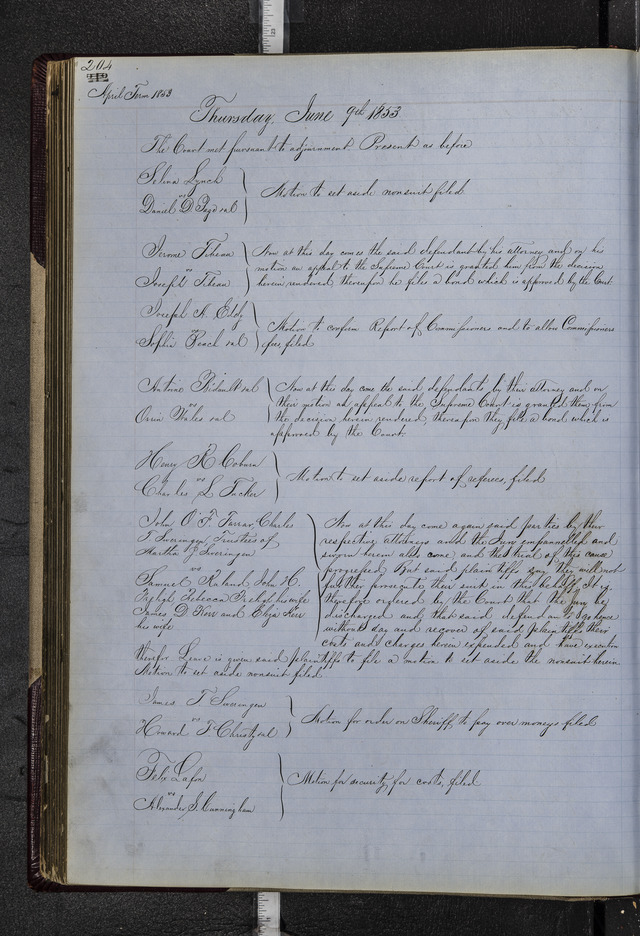 204
April Term 1853
Thursday, June 9th 1853
The Court met pursuant to adjournment Present as before
Selina Lynch
vs
Daniel D. Page et al
Motion to set aside nonsuit filed
Jerome
vs
Joseph
Now at this day comes the said defendant by his attorney and on his
motion an appeal to the Supreme Court is granted him from the decision
herein rendered thereupon he files a bond which is approved by the Court
Joseph A. Eddy
vs
Sophia Peach et al
Motion to confirm Report of Commissioners and to allow Commissioners
fee filed
Antoine et al
vs
Orrin Wales et al
Now at this day come the said defendants by their attorney and on
their motion an appeal to the Supreme Court is granted them from
the decision herein rendered, thereupon they file a bond which is
approved by the Court.
Henry R Coburn
vs
Charles L Tucker
Motion to set aside report of referees, filed
John O'F. Farrar, Charles
T Sweringen, Trustees of
Martha J Sweringen
vs
Samuel Ruland John H.
Rebecca his wife
James D Kerr and Eliza Kerr
his wife
Now at this day come again said parties by their
respective attorneys and the Jury empannelled and
sworn herein also come and the trial of this cause
progressed. But said plaintiffs say they will not
further prosecute their suit in this behalf. It is
therefore ordered by the Court that the jury be
discharged and that said defendants go hence
without day and recover of said plaintiffs their
costs and charges herein expended and have execution
therefor. Leave is given said plaintiffs to file a motion to set aside the nonsuit herein
Motion to set aside nonsuit filed.
James T Sweringen
vs
Howard F Christy et al
Motion for order on Sheriff to pay over moneys filed
Felix Lafon
vs
Alexander S. Cunningham
Motion for security for costs, filed